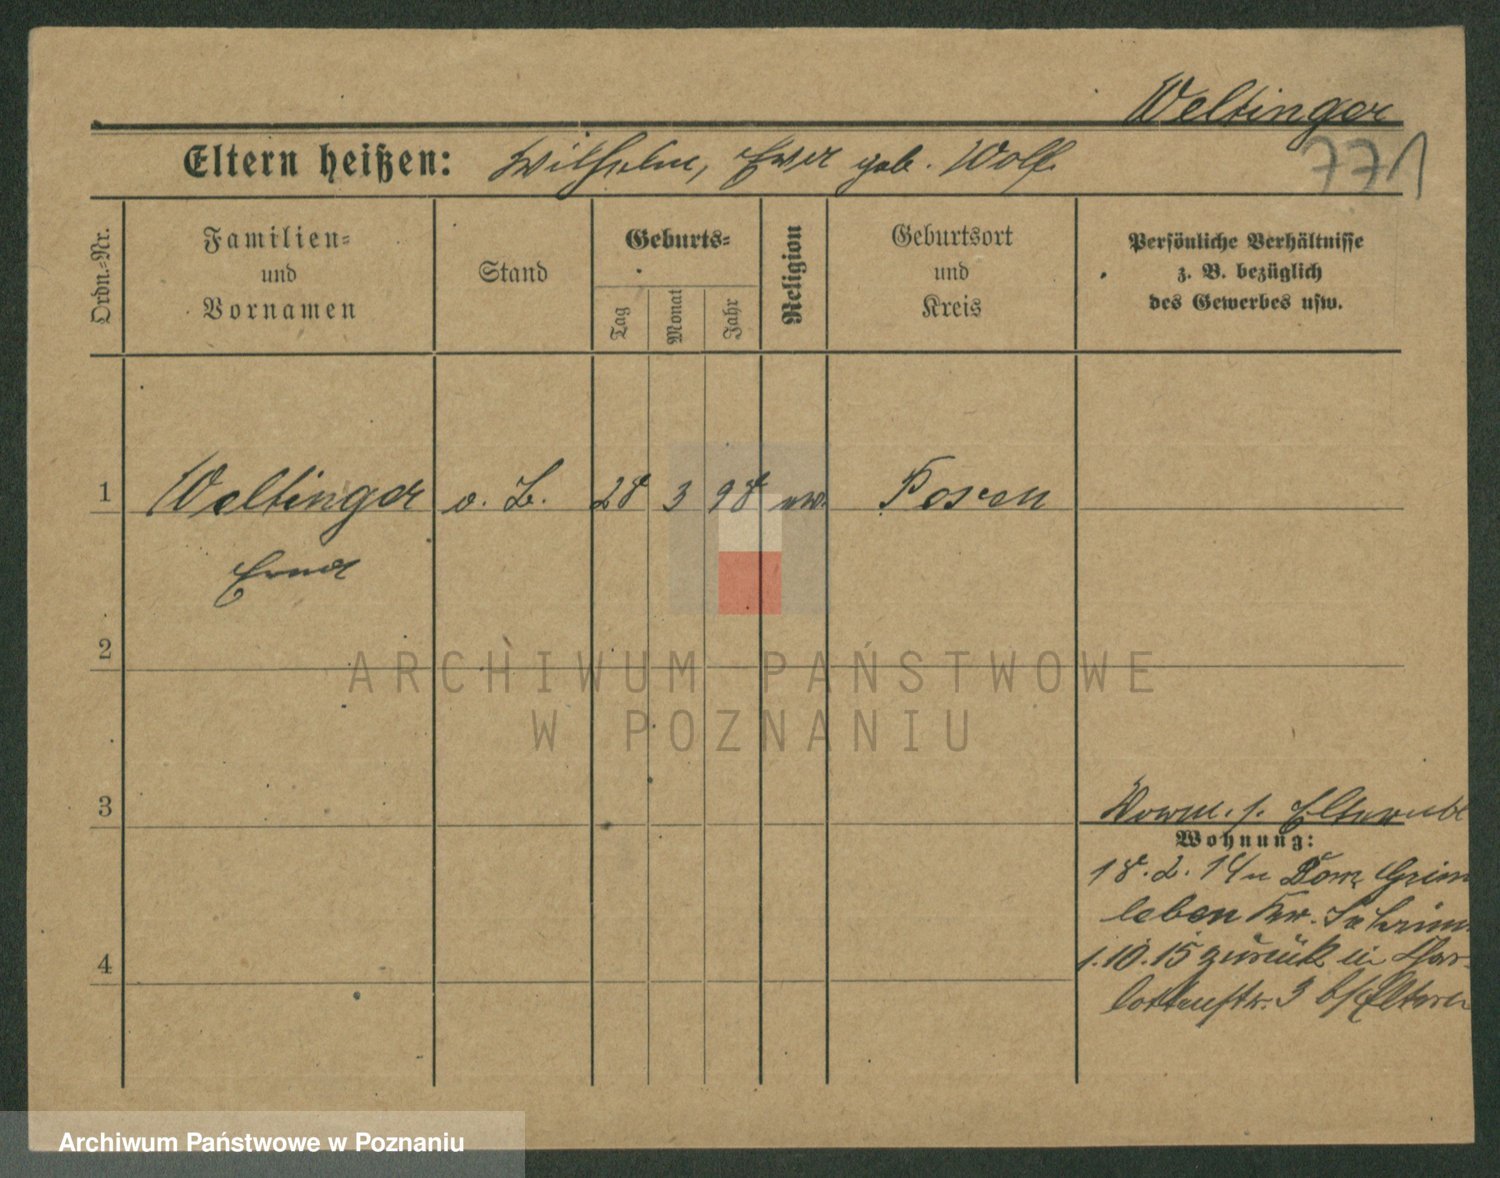 Weltinger
771
Eltern heißen: Wilhelm, geb. Wolf.
Ordn.-Nr.
Familien-
und
Vornamen
Stand
Geburts-
Tag
Monat
Jahr
Religion
Geburtsort
und
Kreis
Persönliche Verhältnisse
z. B. bezüglich
des Gewerbes usw.
1 Weltinger o. B. 28 3 98 Posen
2
3
Wohnung:
18. 2. 14 n Dom. Grim
leben Kr. Schrimm
1.10.15 zurück in Char-
4
lottenstr. 3 b/Eltern
ARCHIWUM PAŃSTWOWE
W POZNANIU
Archiwum Państwowe w Poznaniu